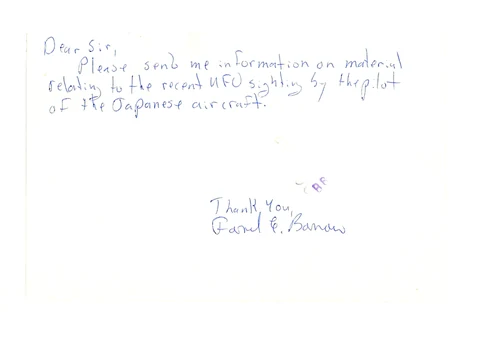 Dear Sir,
Please send me information on material
relating to the recent UFO sighting by the pilot
of the Japanese aircraft.
Thank You,
E.